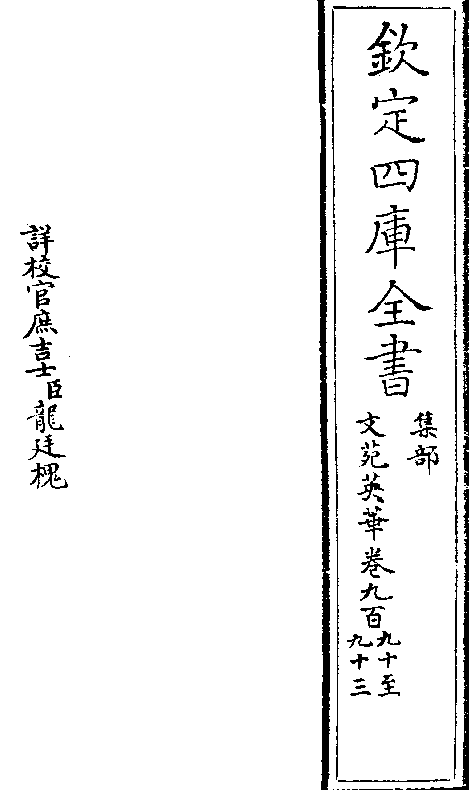 欽定四庫全書
集部
文苑英華卷九百九十至九十三
詳校官庶吉士臣龍廷槐